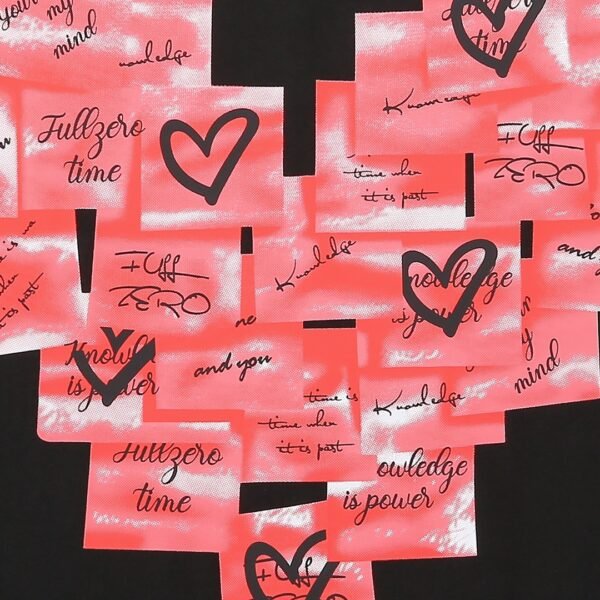 your
my
mind
nowledge
time
Knowledge
Fullzero
time
time when
it is past
FULL
ZERO
FULL
ZERO
Knowledge
nowledge
is power
and
is past
ne
Knowle
is power
and you
time is
time when
it is past
Knowledge
my
mind
Fullzero
time
owledge
is power
FULL
ZERO